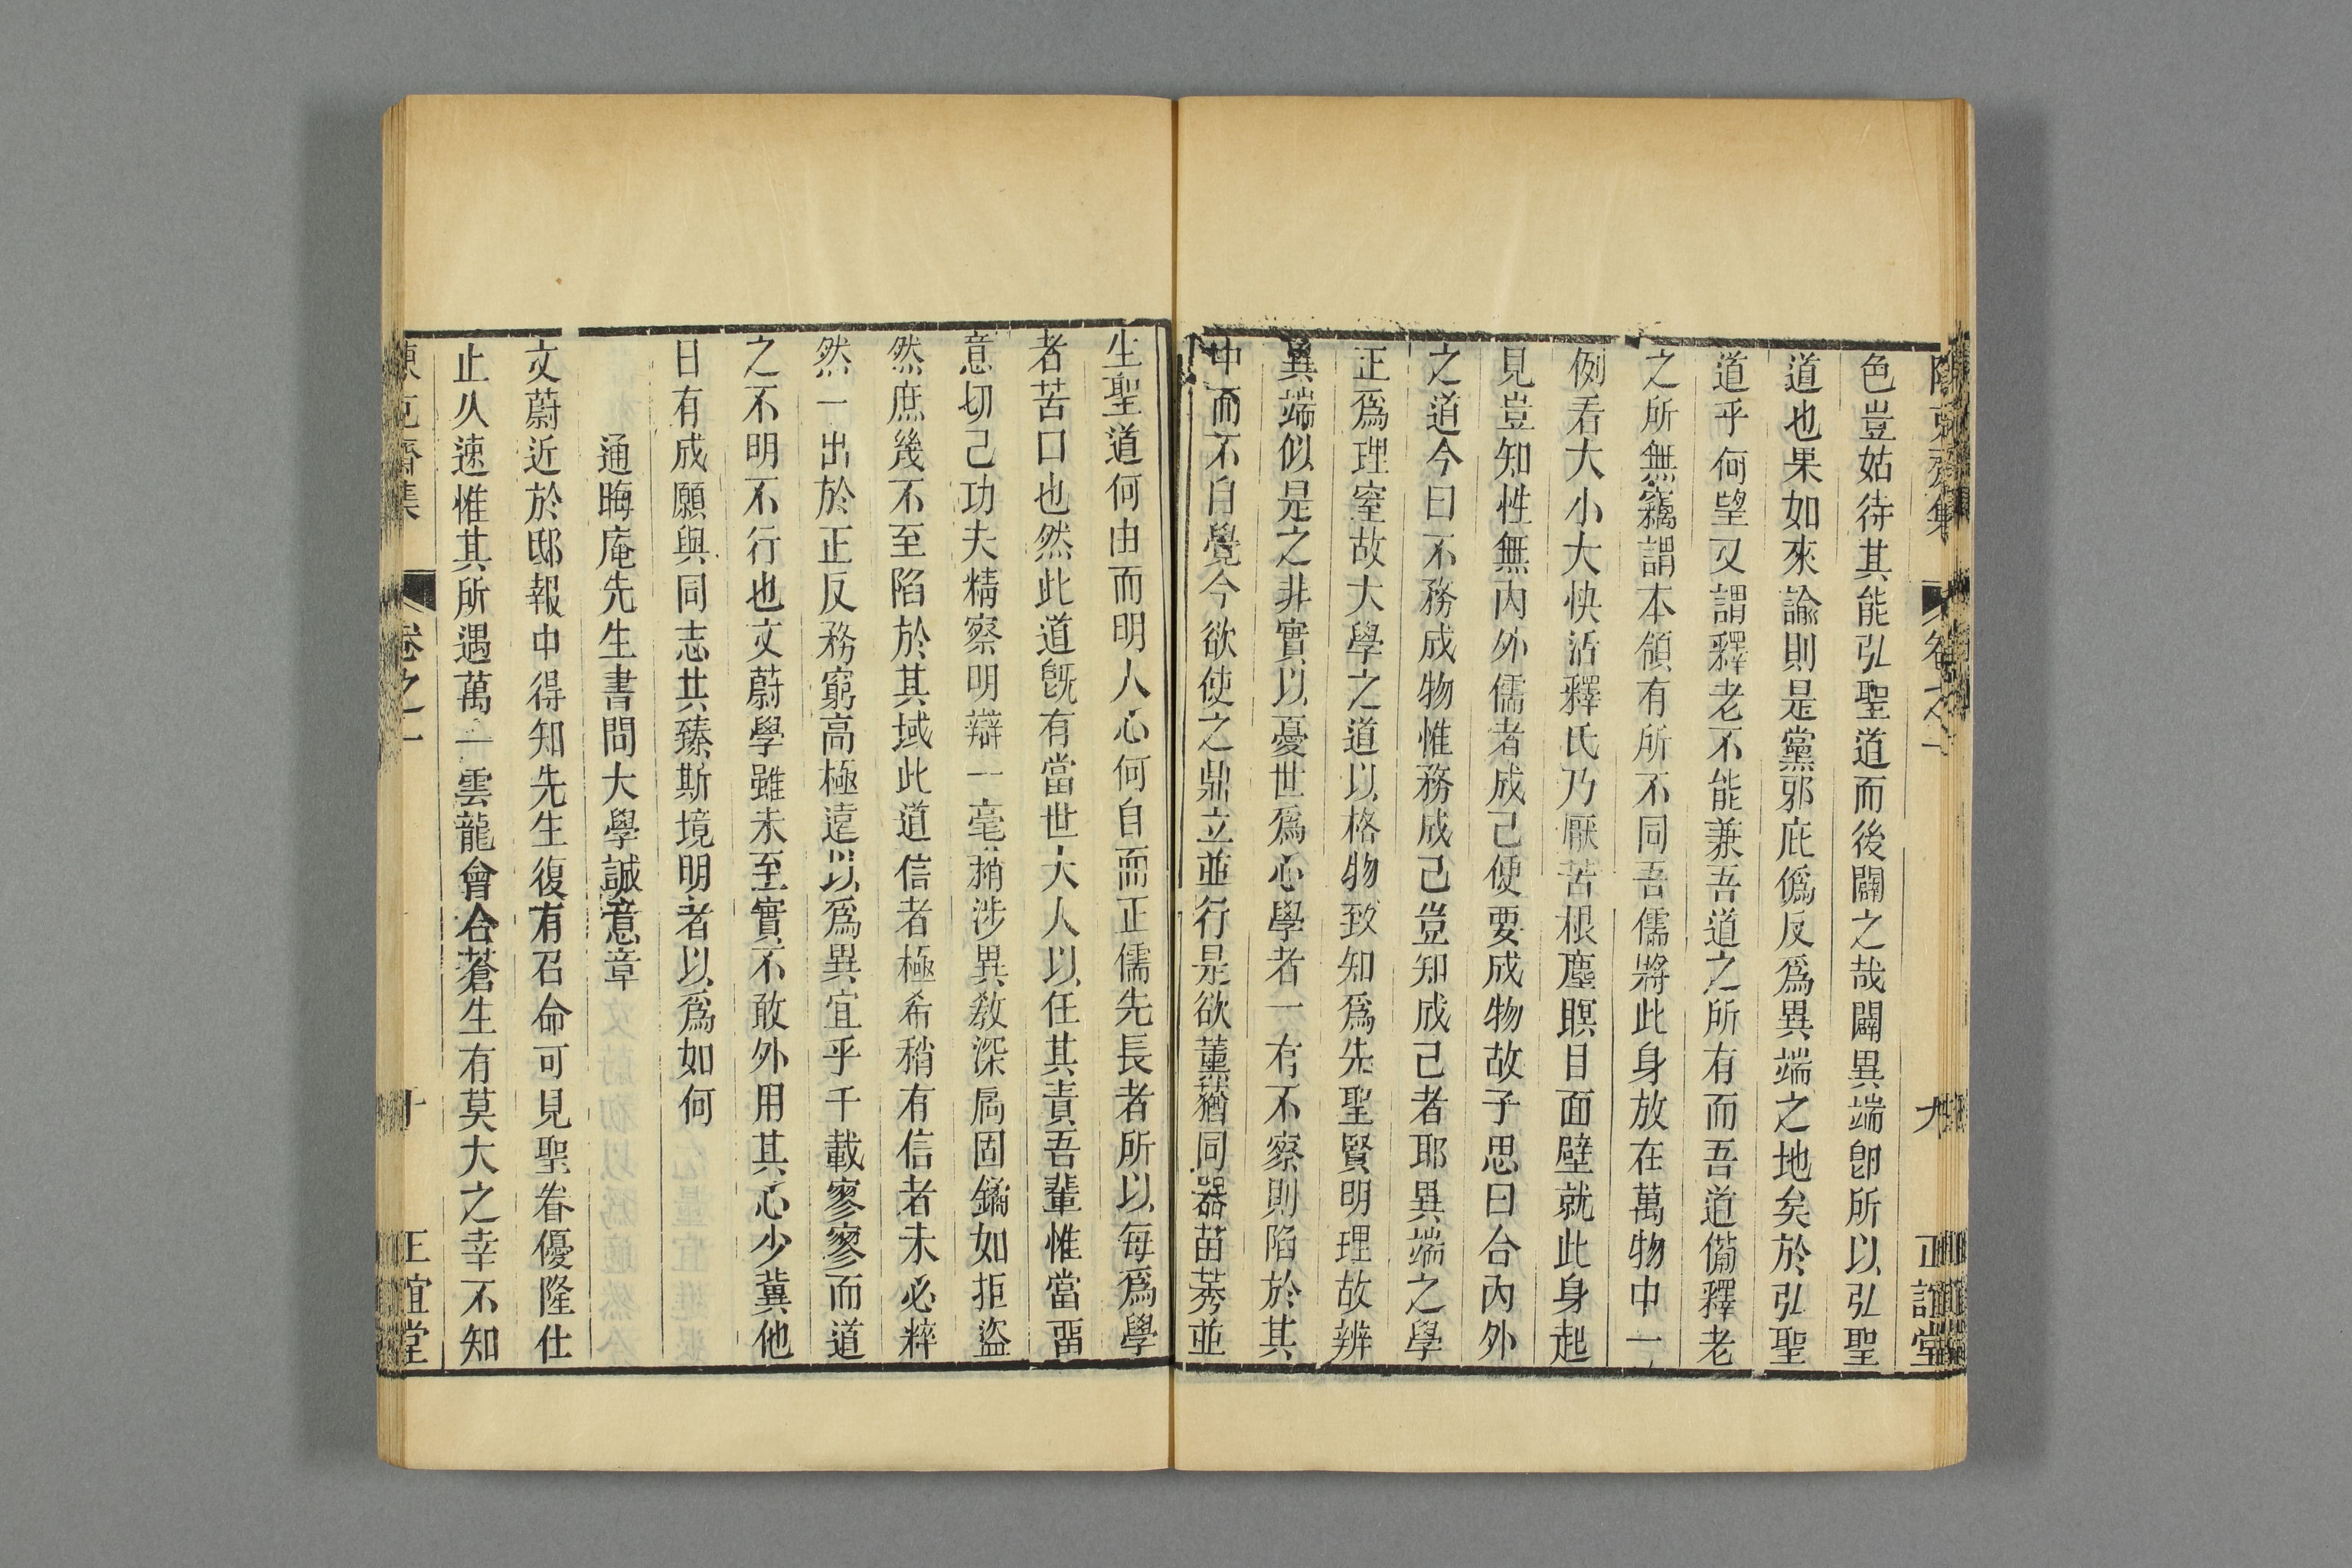 陳克齋集 卷之一 九 正誼堂
色豈姑待其能弘聖道而後闢之哉闢異端卽所以弘聖
道也果如來諭則是黨邪庇僞反爲異端之地矣於弘聖
道乎何望又謂釋老不能兼吾道之所有而吾道備釋老
之所無竊謂本領有所不同吾儒將此身放在萬物中一
例看大小大快活釋氏乃厭苦根塵瞑目面壁就此身起
見豈知性無內外儒者成己便要成物故子思曰合內外
之道今曰不務成物惟務成己豈知成己者耶異端之學
正爲理窒故大學之道以格物致知爲先聖賢明理故辨
異端似是之非實以憂世爲心學者一有不察則陷於其
中而不自覺今欲使之鼎立並行是欲薰蕕同器苗莠並
生聖道何由而明人心何自而正儒先長者所以每爲學
者苦口也然此道旣有當世大人以任其責吾輩惟當畱
意切己功夫精察明辯一毫稍涉異敎深扃固鐍如拒盜
然庶幾不至陷於其域此道信者極希稍有信者未必粹
然一出於正反務窮高極遠以爲異宜乎千載寥寥而道
之不明不行也文蔚學雖未至實不敢外用其心少冀他
日有成願與同志共臻斯境明者以爲如何
通晦庵先生書問大學誠意章
文蔚近於邸報中得知先生復有召命可見聖眷優隆仕
止久速惟其所遇萬一雲龍會合蒼生有莫大之幸不知
陳克齋集 卷之一 十 正誼堂